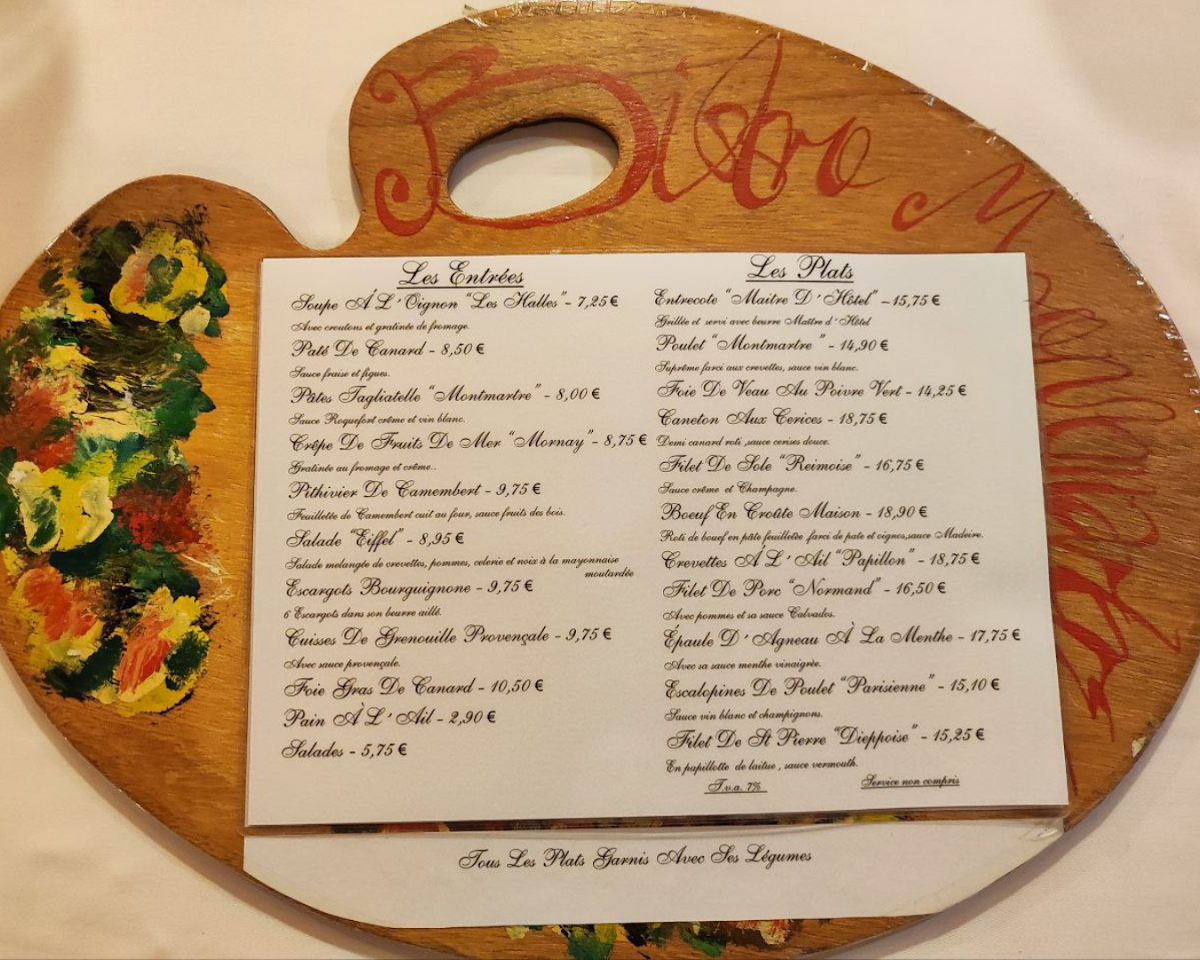 Bistro Montmartre
Les Entrées
Soupe Á L'Oignon "Les Halles" - 7,25 €
Avec croutons et gratinée de fromage.
Paté De Canard - 8,50 €
Sauce fraise et figues.
Pâtes Tagliatelle "Montmartre" - 8,00 €
Sauce Roquefort crême et vin blanc.
Crêpe De Fruits De Mer "Mornay" - 8,75 €
Gratinée au fromage et crême..
Pithivier De Camembert - 9,75 €
Feuilletée de Camembert cuit au four, sauce fruits des bois.
Salade "Eiffel" - 8,95 €
Salade melangée de crevettes, pommes, celerie et noix à la mayonnaise
moutardée
Escargots Bourguignone - 9,75 €
6 Escargots dans son beurre aillé.
Cuisses De Grenouille Provençale - 9,75 €
Avec sauce provençale.
Foie Gras De Canard - 10,50 €
Pain À L'Ail - 2,90 €
Salades - 5,75 €
Les Plats
Entrecote "Maitre D'Hôtel" - 15,75 €
Grillée et servi avec beurre Maître d'Hôtel
Poulet "Montmartre" - 14,90 €
Suprême farci aux crevettes, sauce vin blanc.
Foie De Veau Au Poivre Vert - 14,25 €
Caneton Aux Cerices - 18,75 €
Demi canard roti ,sauce cerises douce.
Filet De Sole "Reimoise" - 16,75 €
Sauce crême et Champagne.
Boeuf En Croûte Maison - 18,90 €
Roti de bouef en pâte feuilletée farci de pate et oignos,sauce Madeire.
Crevettes Á L'Ail "Papillon" - 18,75 €
Filet De Porc "Normand" - 16,50 €
Avec pommes et sa sauce Calvados.
Épaule D'Agneau À La Menthe - 17,75 €
Avec sa sauce menthe vinaigrée.
Escalopines De Poulet "Parisienne" - 15,10 €
Sauce vin blanc et champignons.
Filet De St Pierre "Dieppoise" - 15,25 €
En papillotte de laitue , sauce vermouth.
T.v.a. 7% Service non compris
Tous Les Plats Garnis Avec Ses Légumes